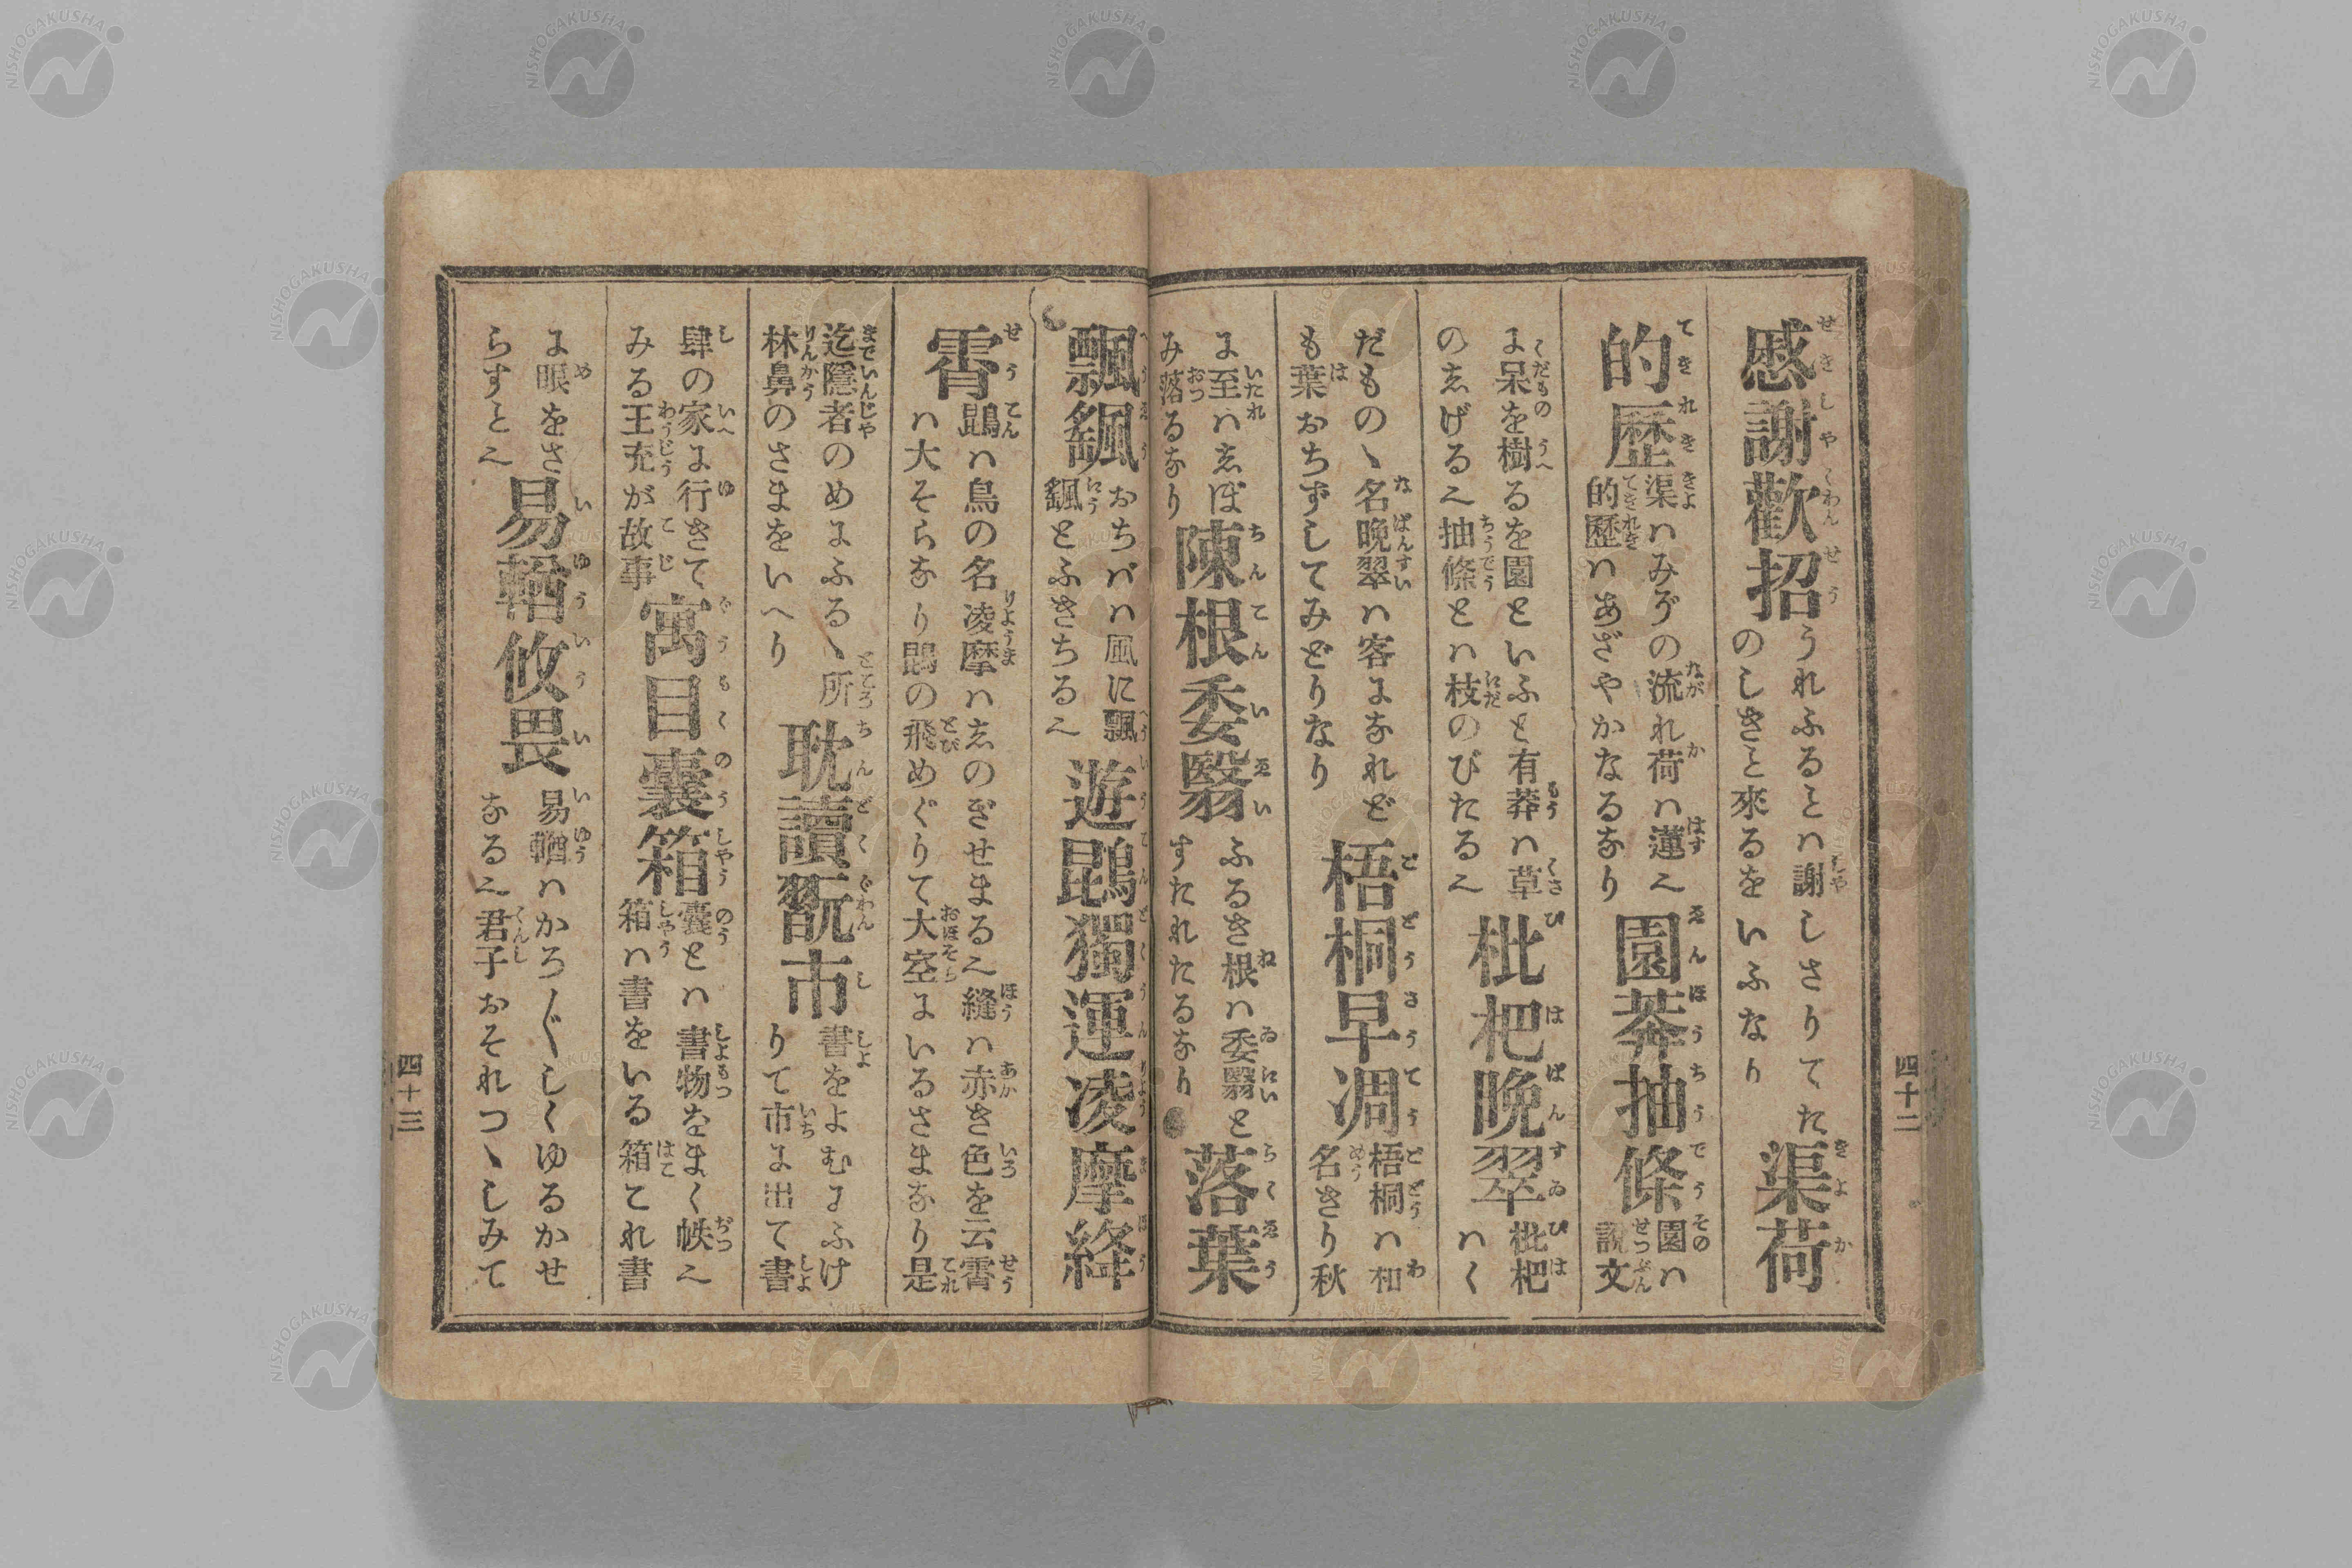 慼謝歡招
うれふるとは謝しさりてた
のしきと來るをいふなり
渠荷
的歴
渠ハみぞの流れ荷ハ蓮〻
的歷ハあざやかなるなり
園莽抽條
園ハ
說文
に呆を樹るを園といふと有莽ハ草
のしげる〻抽條とハ枝のびたる〻
枇杷晩翠
枇杷
ハく
だものゝ名晩翠ハ客になれど
も葉おちずしてみどりなり
梧桐早凋
梧桐ハ和
名きり秋
に至れハしぼ
み落るなり
陳根委翳
ふるき根ハ委翳と
すたれたるなり
落葉
飄颻
おちバハ風に飄
颻とふきちる〻
遊鵾獨運凌摩絳
霄
鵾ハ鳥の名凌摩ハしのぎせまる〻縫ハ赤き色を云霄
ハ大そらなり鵾の飛めぐりて大空にいるさまなり是
迄隱者のめにふるゝ所
林鼻のさまをいへり
耽讀翫市
書をよむにふけ
りて市に出て書
肆の家に行きて
みる王充が故事
寓目囊箱
囊とハ書物をまく帙〻
箱ハ書をいる箱これ書
に眼をさ
らすと〻
易輶攸畏
易輶ハかろ〴〵しくゆるかせ
なる〻君子おそれつゝしみて
四十二
四十三
NISHOGAKUSHA